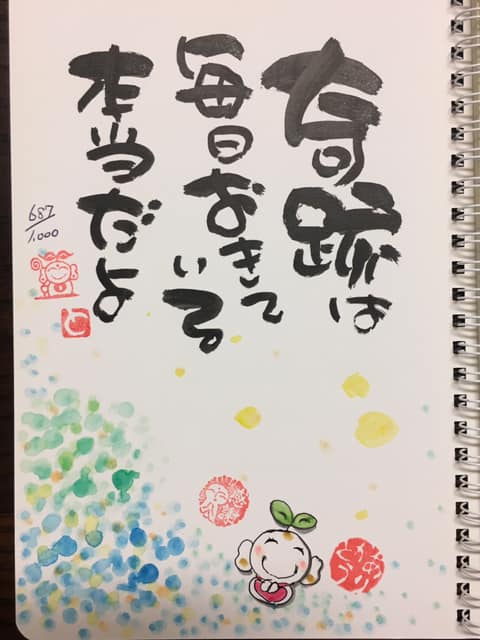 奇跡は
毎日おきて
いる
本当だよ
687/1.000